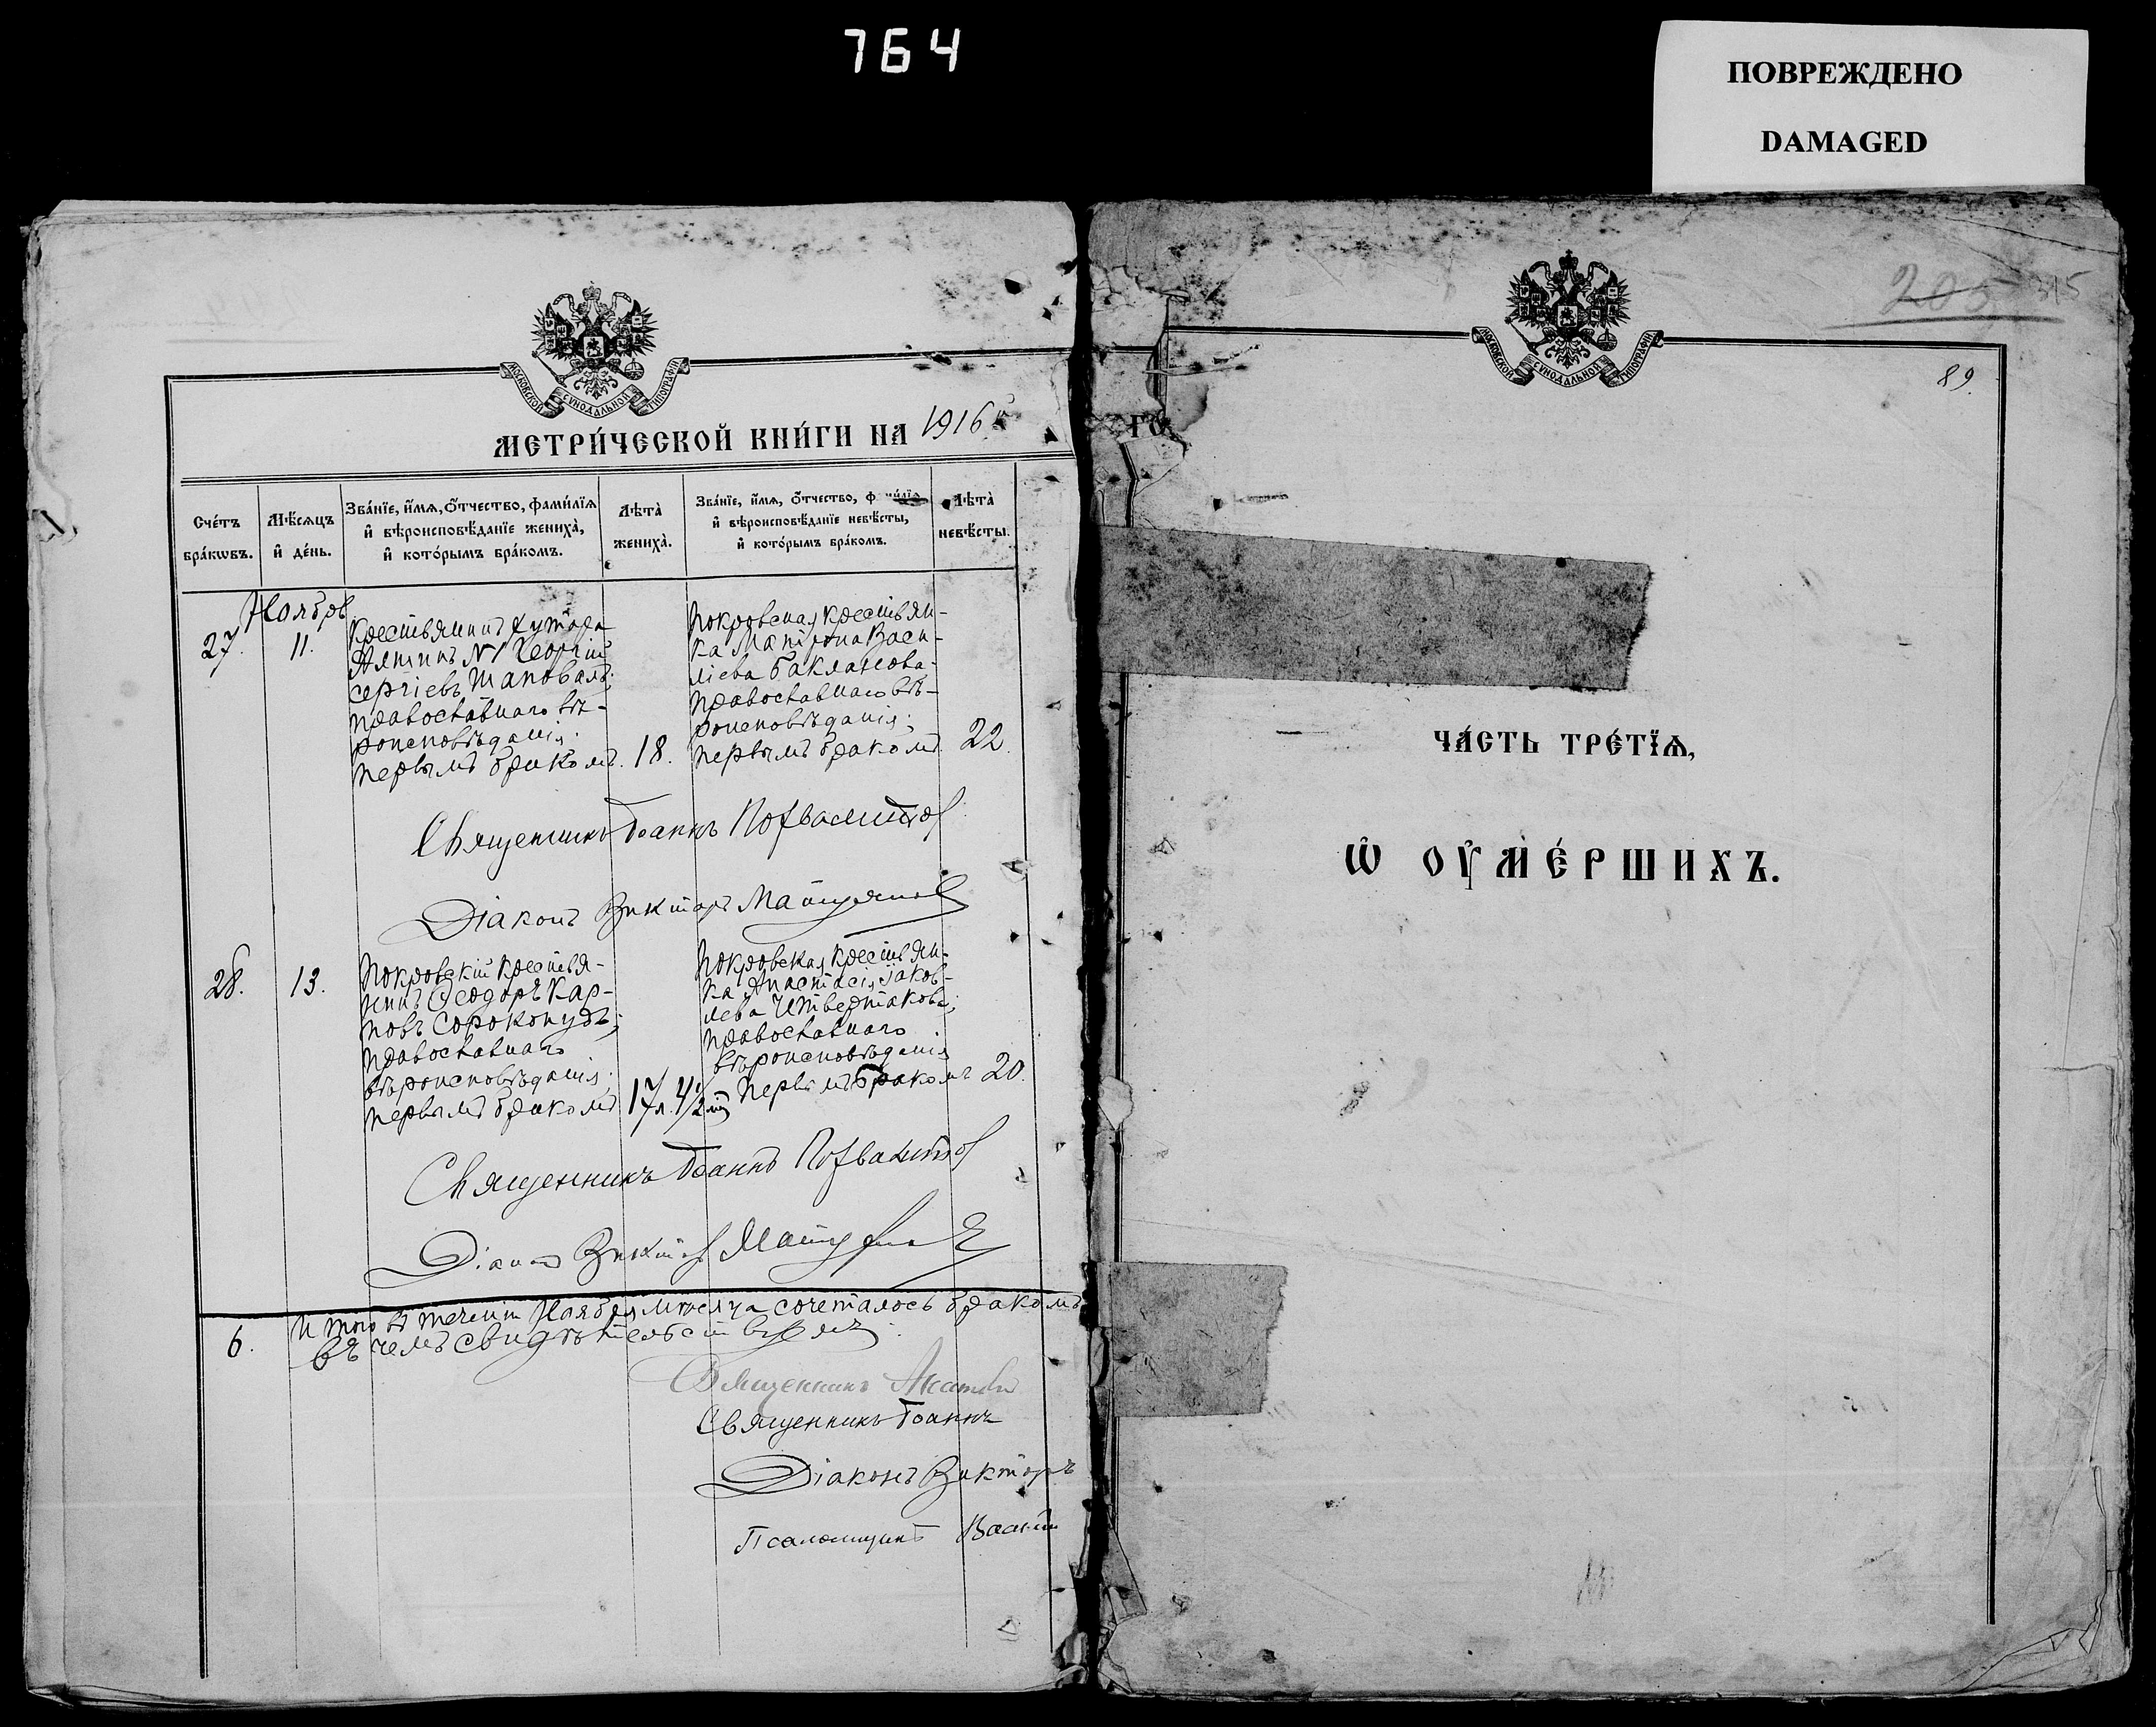 764
ПОВРЕЖДЕНО
DAMAGED
МОСКОВСКОЙ СѴНОДАЛЬНОЙ ТИПОГРАФІИ
МЕТРИ́ЧЕСКОЙ КНИ́ГИ НА 1916й
Счéтъ бра́кѡвъ.
Мѣ́сяцъ и҆ де́нь.
Зва́нїе, и҆́мѧ, ѻ҆́тчество, фами́лїѧ
и҆ вѣроисповѣ́данїе жениха̀,
и҆ кото́рымъ бра́комъ.
Лѣта̀ жениха̀.
Зва́нїе, и҆́мѧ, ѻ҆́тчество, фами́лїѧ
и҆ вѣроисповѣ́данїе невѣ́сты,
и҆ кото́рымъ бра́комъ.
Лѣта̀ невѣ́сты.
Ноябрь
27.
11.
Крестьянинъ хутора
№ 1 Георгій
Сергіевъ Шаповалъ;
православнаго вѣ-
роисповѣданія;
первымъ бракомъ.
18.
Покровская крестьян-
ка Матрона Васи-
ліева Бакланова
православнаго вѣ-
роисповѣданія;
первымъ бракомъ
22.
Священникъ Іоаннъ Похвалитовъ
Діаконъ Викторъ
28.
13.
Покровскій крестья-
нинъ Ѳеодоръ Кар-
повъ Сорокопудъ;
православнаго
вѣроисповѣданія;
первымъ бракомъ
17 л. 4 1/2 м
Покровская крестьян-
ка Анастасія Іаков-
лева Четвертакова;
православнаго
вѣроисповѣданія
первымъ бракомъ
20.
Священникъ Іоаннъ Похвалитовъ
Діаконъ Викторъ
6.
Итого въ теченіи Ноября мѣсяца сочеталось бракомъ
въ чемъ свидѣтельствуемъ:
Священникъ
Священникъ Іоаннъ
Діаконъ Викторъ
Псаломщикъ Василій
205
315
МОСКОВСКОЙ СѴНОДАЛЬНОЙ ТИПОГРАФІИ
89.
ГО
ЧА́СТЬ ТРЕ́ТЇѦ,
Ѽ ОУ҆МЕ́РШИХЪ.